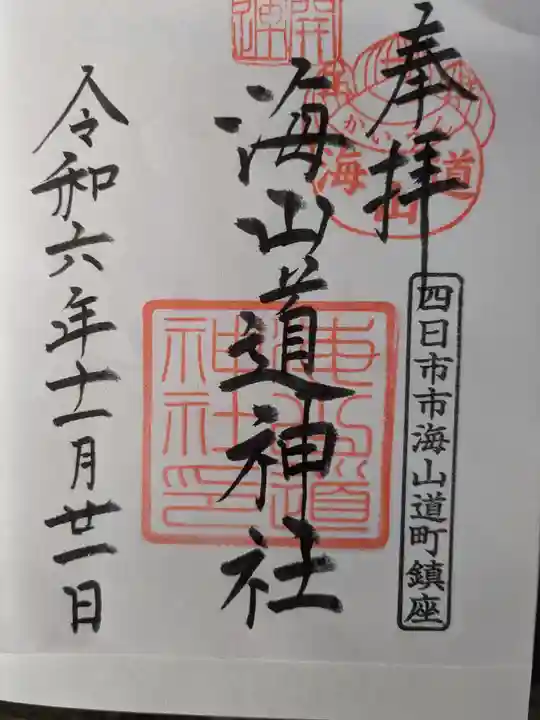 奉拝
四日市市海山道町鎮座
開運
かいさん
海山道
海山道神社
海山道神社印
令和六年十一月廿一日